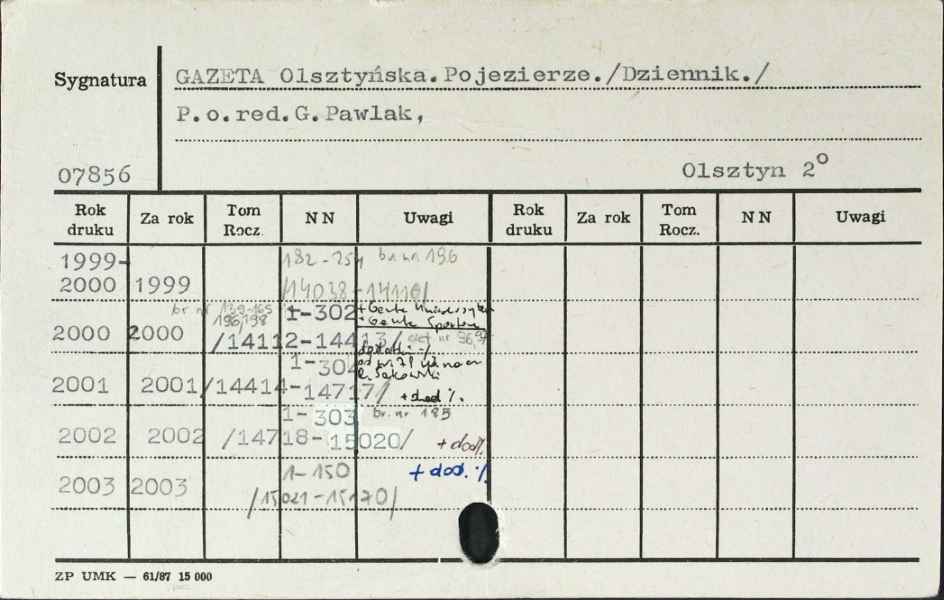 Sygnatura GAZETA Olsztyńska.Pojezierze./Dziennik./
P.o.red.G.Pawlak,
07856 Olsztyn 2°
Rok druku Za rok Tom Rocz. NN Uwagi Rok druku Za rok Tom Rocz. NN Uwagi
1999- 182-254 br. nr 196
2000 1999 /14038-14110/
br nr 139-165 1-302
196,198
2000 2000 /14112-14413/
1-304
2001 2001 /14414-14717/ + dod %.
1-303 br. nr 185
2002 2002 /14718-15020/ + dod %.
1-150 + dod. %.
2003 2003 /15021-15170/
ZP UMK — 61/87 15 000